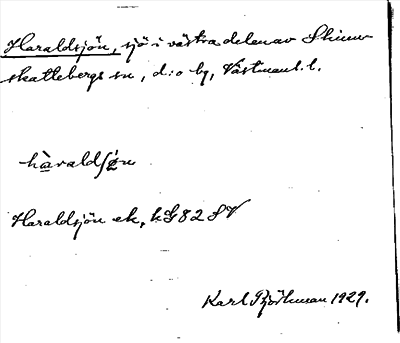 Haraldsjön, sjö i västra delen av Skinn-
skattebergs sn, d:o bg, Västmanl. l.
hàraldſø̀n
Haraldsjön ek, kG82SV
Karl Björkman 1929.